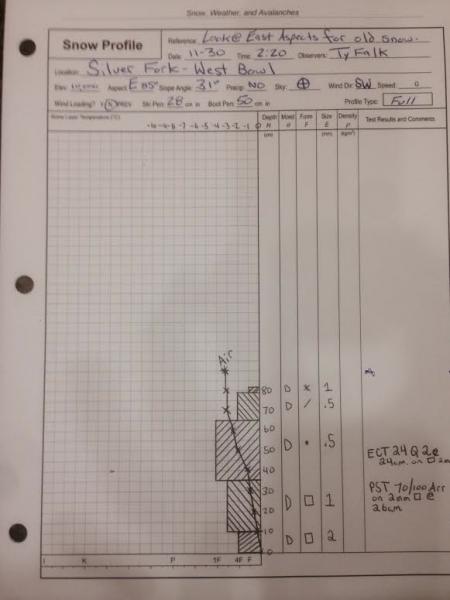 Snow, Weather, and Avalanches
Snow Profile
Reference: Look@ East Aspects for old snow.
Date: 11-30 Time: 2:20 Observers: Ty Falk
Location: Silver Fork - West Bowl
Elev: Aspect: E 85° Slope Angle: 31° Precip: NO Sky: ⊕ Wind Dir: SW Speed: 0
Wind Loading? Y N PREV Ski Pen: 28 cm in Boot Pen: 50 cm in Profile Type: Full
Snow Layer Temperature (°C) Depth Moist Form Size Density Test Results and Comments
H θ F E ρ
(cm) (mm) (kg/m³)
Air
80 D × 1
70 D / .5
60
50 D • .5
ECT 24 Q 2@
24cm. on □
40
30 PST 70/100 Arr
D □ 1 on 2mm □ @
20 26cm
10
D □ 2
0
I K P 1F 4F F